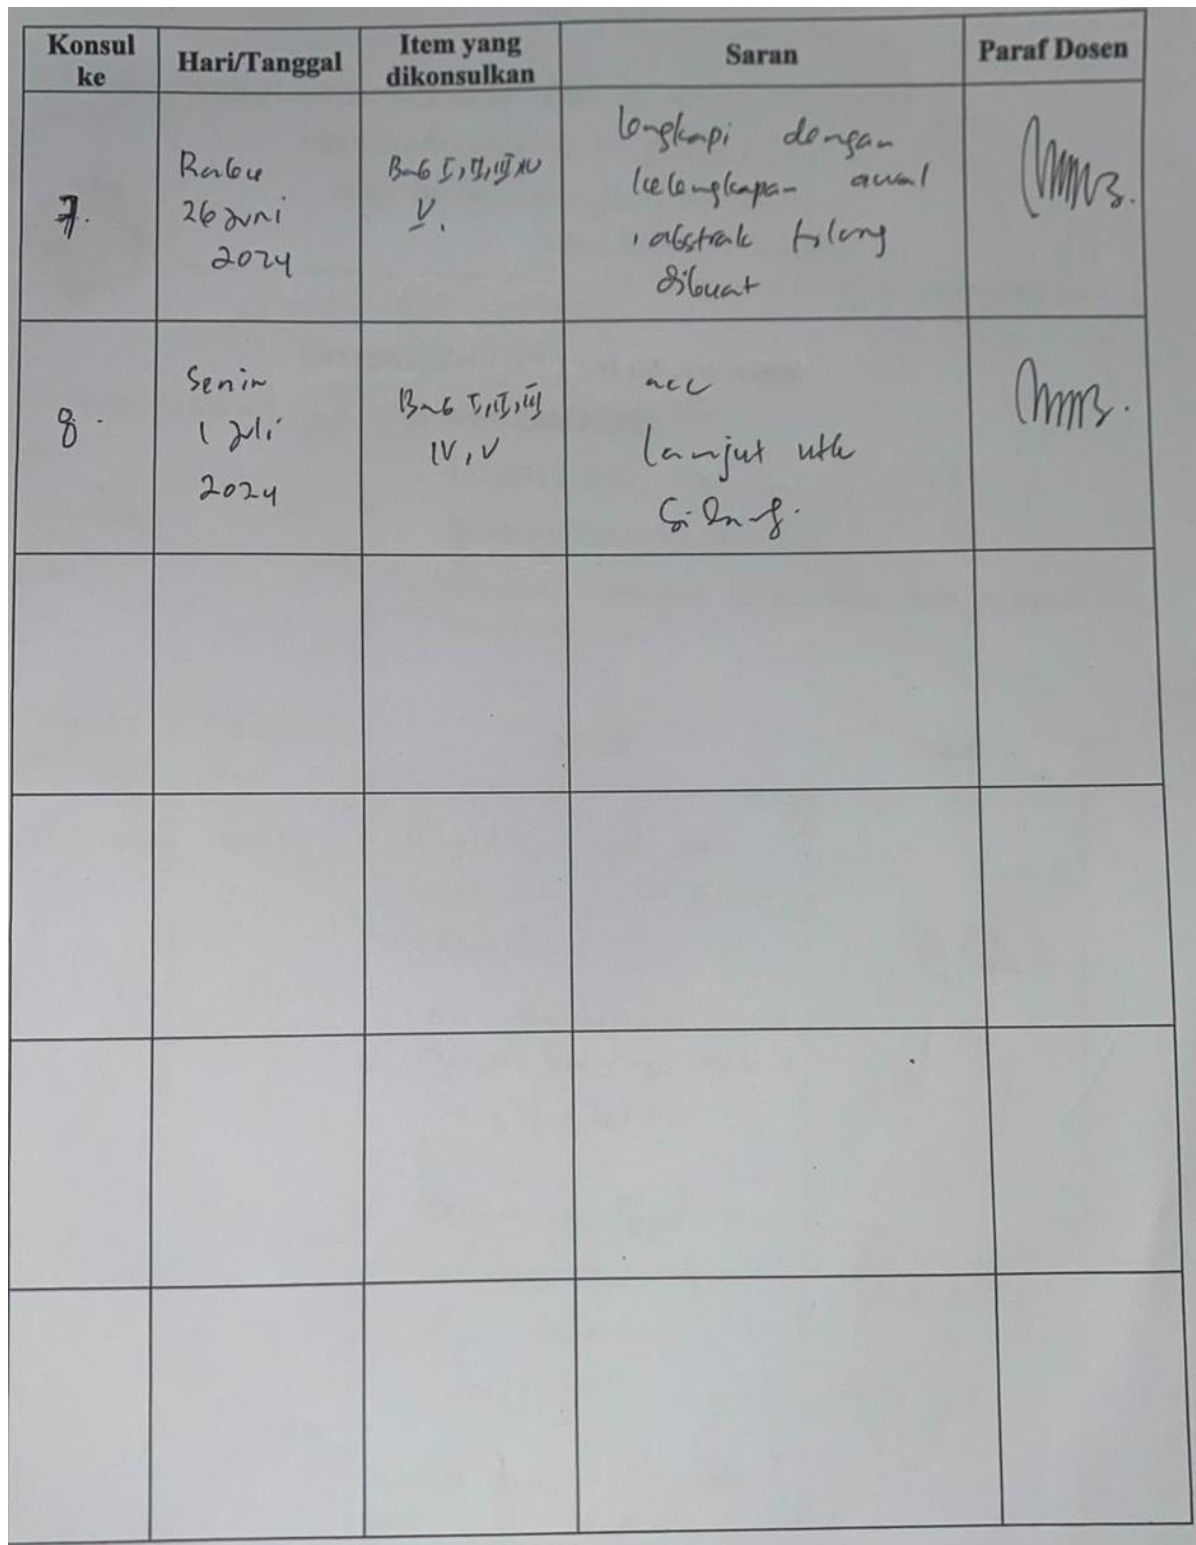 Konsul ke
Hari/Tanggal
Item yang dikonsulkan
Saran
Paraf Dosen
7.
Rabu
26 Juni
2024
Bab I, II, III, IV
V.
lengkapi dengan
kelengkapan awal
, abstrak tolong
dibuat
8.
Senin
1 Juli
2024
Bab I, II, III
IV, V
acc
lanjut utk
Sidang.